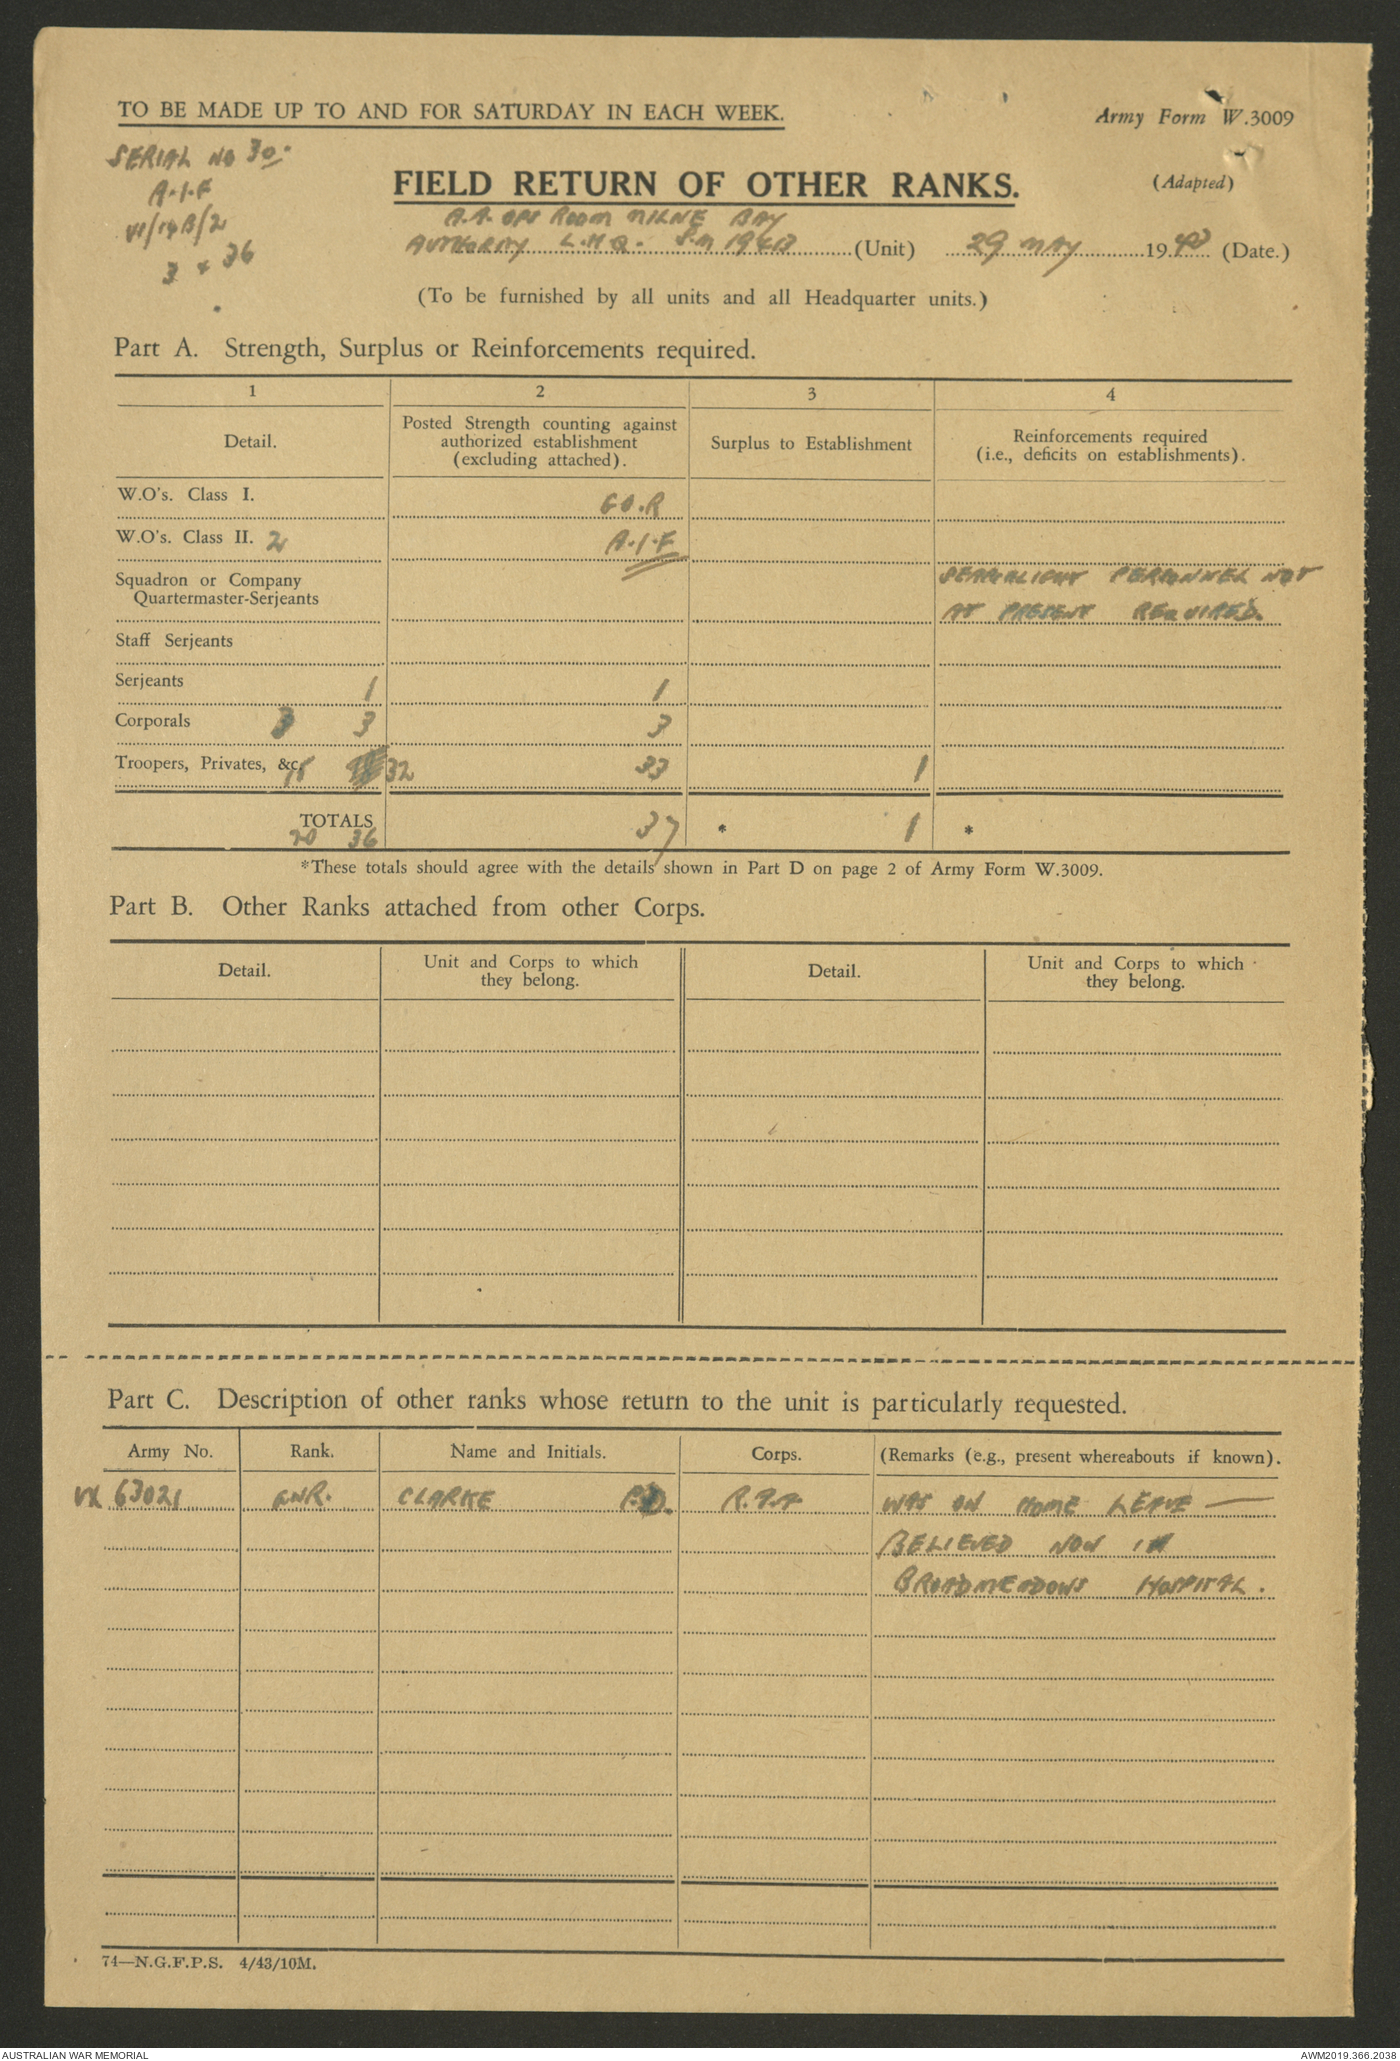 TO BE MADE UP TO AND FOR SATURDAY IN EACH WEEK.
Army Form W.3009
SERIAL NO 30.
A.I.F
VI/14B/2
3 + 36
FIELD RETURN OF OTHER RANKS.
(Adapted)
A.A. OPS ROOM MILNE BAY
AUTHORITY L.H.Q. S.M 19613 (Unit) 29 MAY 1943 (Date.)
(To be furnished by all units and all Headquarter units.)
Part A. Strength, Surplus or Reinforcements required.
1 2 3 4
Detail.
Posted Strength counting against
authorized establishment
(excluding attached).
Surplus to Establishment
Reinforcements required
(i.e., deficits on establishments).
W.O's. Class I. 60.R
W.O's. Class II. 2 A.I.F
Squadron or Company
Quartermaster-Serjeants
SEARCHLIGHT PERSONNEL NOT
AT PRESENT REQUIRED.
Staff Serjeants
Serjeants 1 1
Corporals 3 3 3
Troopers, Privates, &c. 15 32 33 1
TOTALS 20 36 37 * 1 *
*These totals should agree with the details shown in Part D on page 2 of Army Form W.3009.
Part B. Other Ranks attached from other Corps.
Detail.
Unit and Corps to which
they belong.
Detail.
Unit and Corps to which
they belong.
Part C. Description of other ranks whose return to the unit is particularly requested.
Army No. Rank. Name and Initials. Corps. (Remarks (e.g., present whereabouts if known).
VX 63021 GNR. CLARKE R.A.A WAS ON HOME LEAVE —
BELIEVED NOW IN
BROADMEADOWS HOSPITAL.
74—N.G.F.P.S. 4/43/10M.
AUSTRALIAN WAR MEMORIAL
AWM2019.366.2038